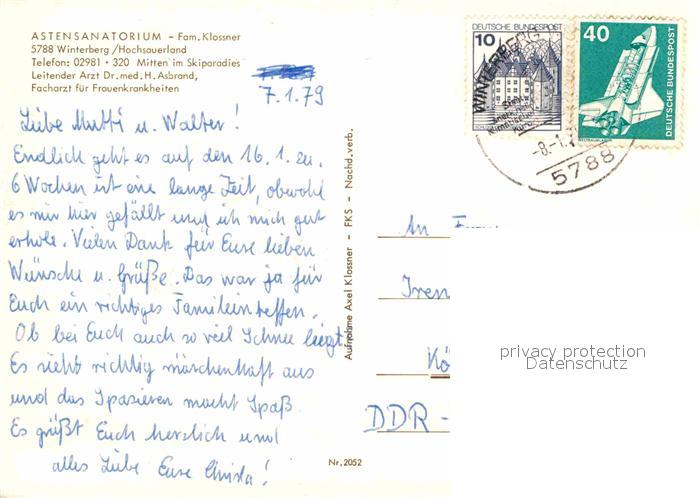 ASTENSANATORIUM – Fam. Klossner
5788 Winterberg/Hochsauerland
Telefon: 02981 · 320 Mitten im Skiparadies
Leitender Arzt Dr. med. H. Asbrand,
Facharzt für Frauenkrankheiten
7.1.79
Liebe Mutti u. Walter!
Endlich geht es auf den 16.1. zu.
6 Wochen ist eine lange Zeit, obwohl
es mir hier gefällt und ich mich gut
erhole. Vielen Dank für Eure lieben
Wünsche u. Grüße. Das war ja für
Euch ein richtiges Familientreffen.
Ob bei Euch auch so viel Schnee liegt?
Es sieht richtig märchenhaft aus
und das Spazieren macht Spaß.
Es grüßt Euch herzlich und
alles Liebe Eure Christa!
Aufnahme Axel Klossner – FKS – Nachd. verb.
Nr. 2052
10 DEUTSCHE BUNDESPOST
40
DEUTSCHE BUNDESPOST
WINTERBERG
-8.-1.
5788
An
Iren
Kö
DDR -
privacy protection
Datenschutz